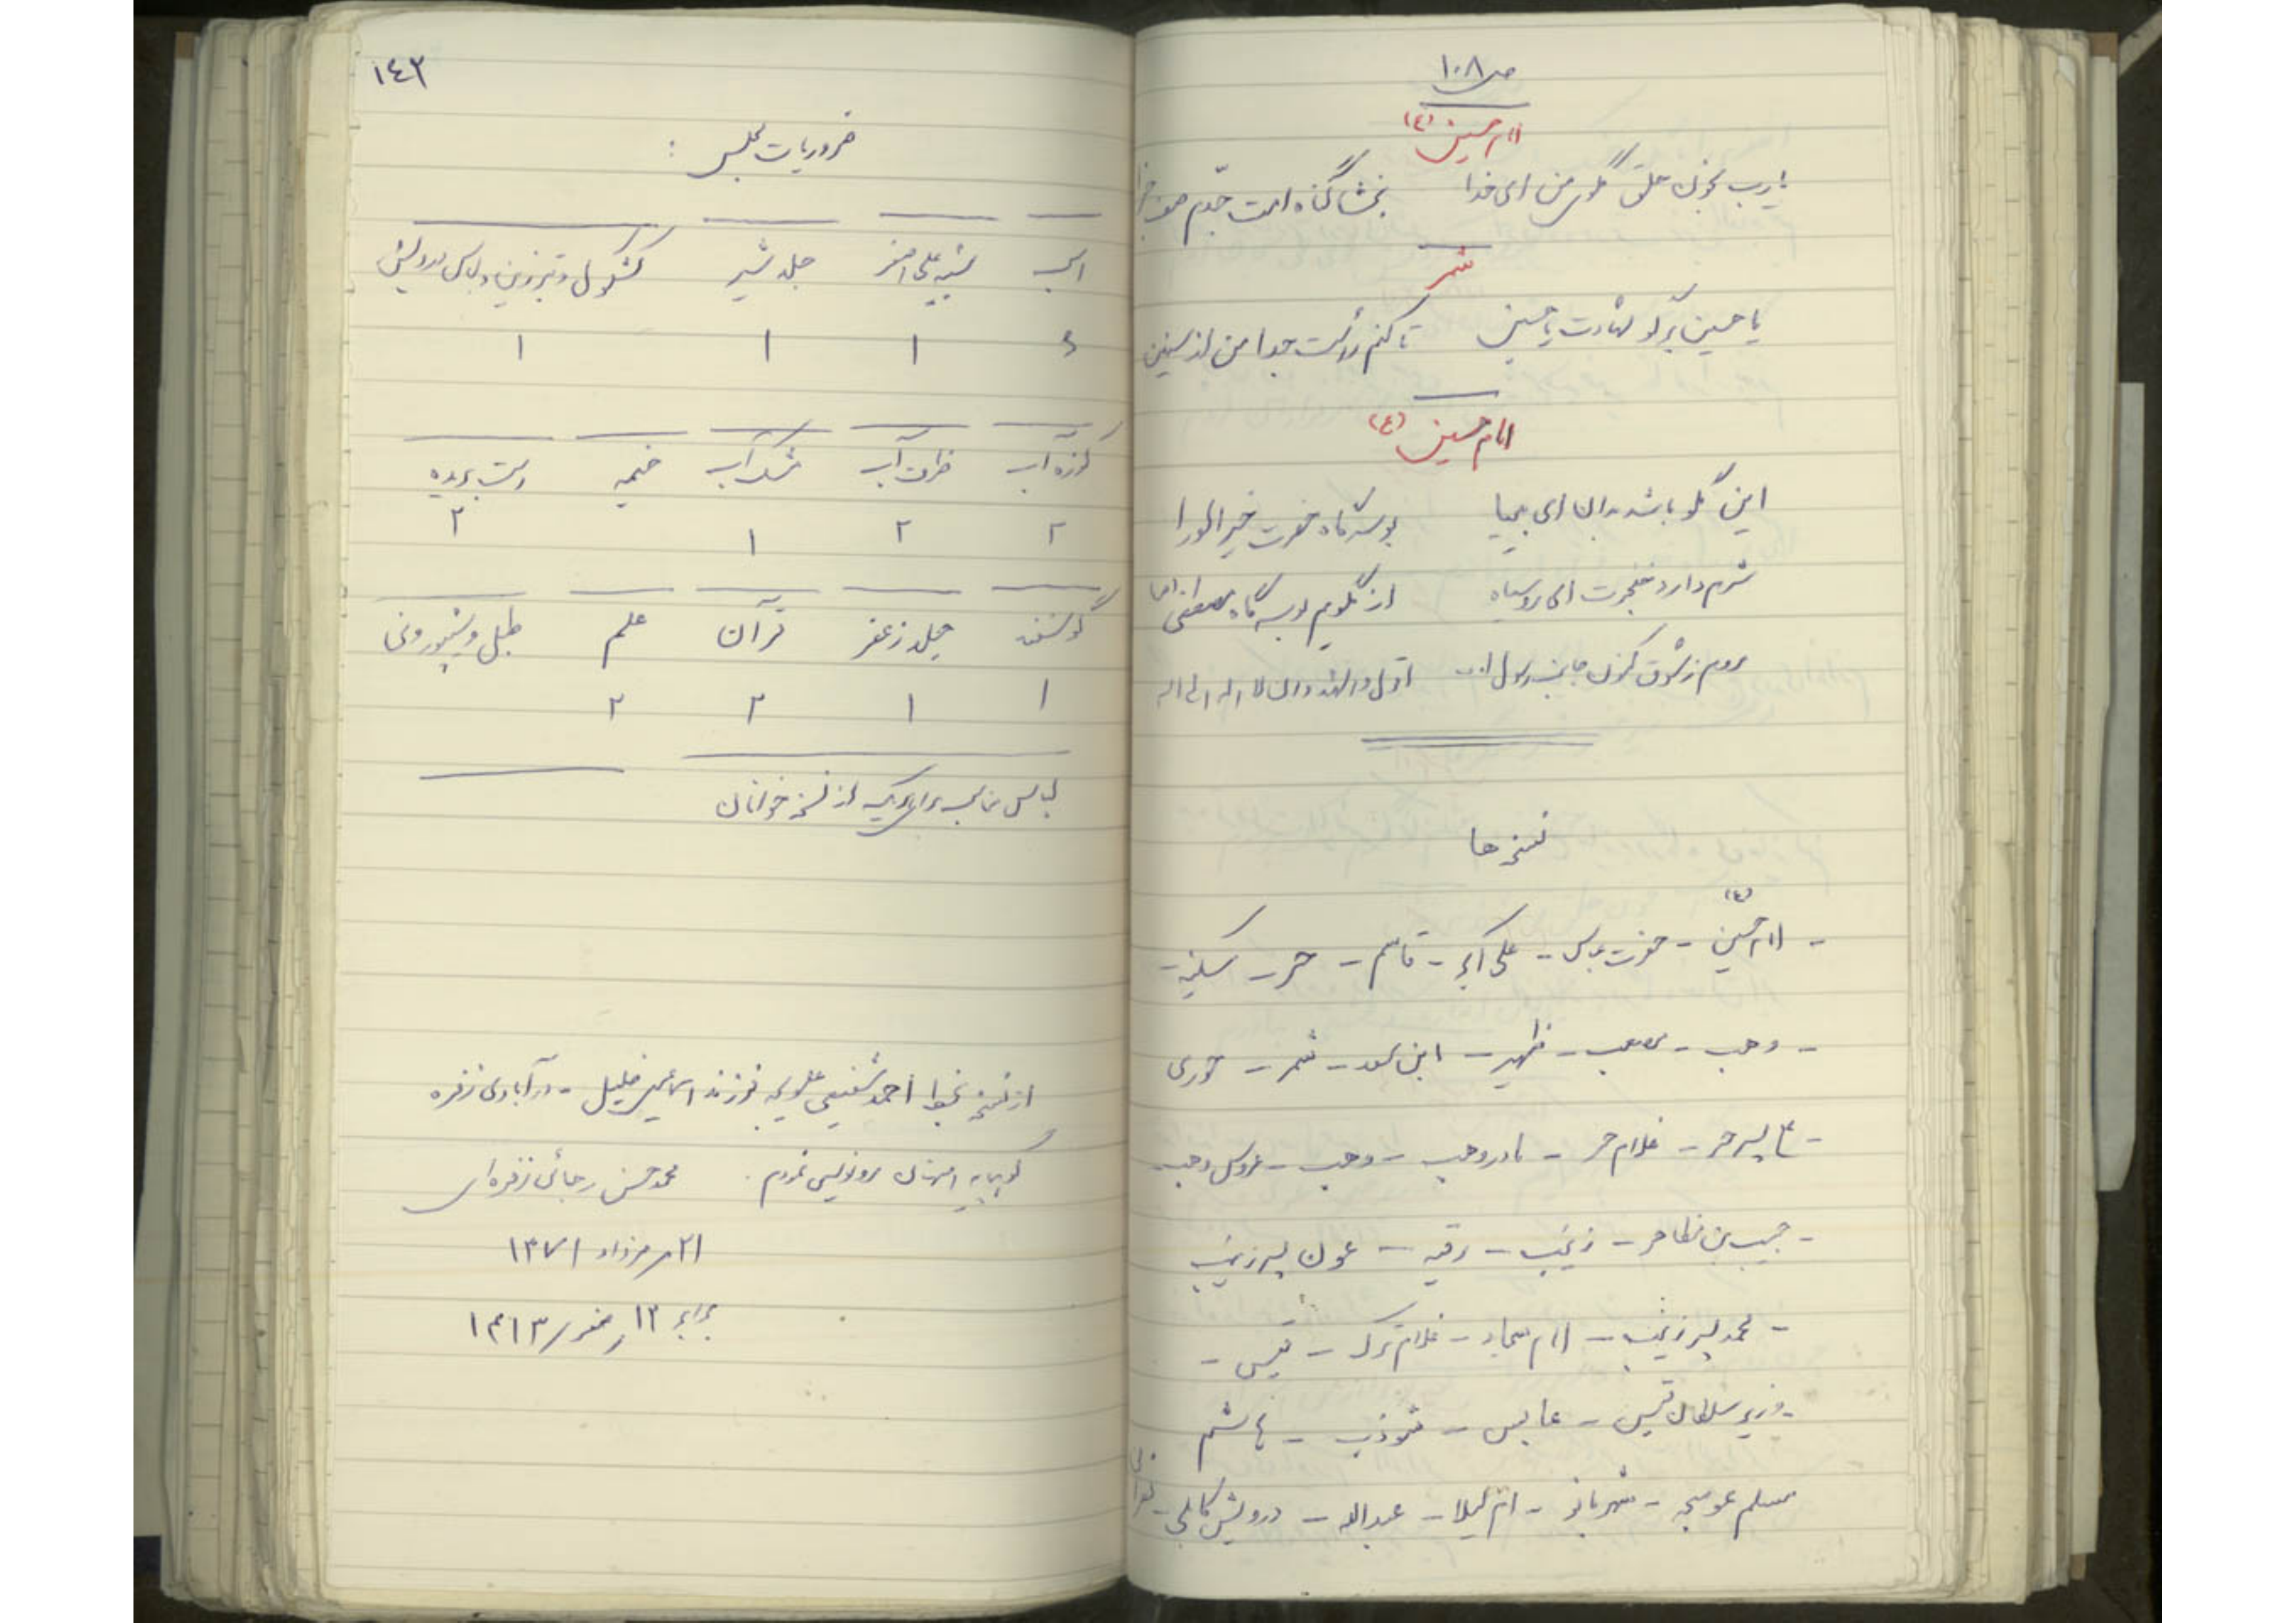 ص ۱۰۸
امام حسین (ع)
یارب بخون حلق گلوی من ای خدا بخشا گناه امت جدم
شمر
یا حسین برگو شهادت یا حسین تا کنم رأست جدا من از سنین
امام حسین (ع)
این گلو باشد بدان ای بی‌حیا بوسه‌گاه حضرت خیرالورا
شرم دارد خنجرت ای روسیاه از گلویم بوسه‌گاه مصطفی
روم ز شوق کنون جانب رسول اله اقول و اشهد و ان لا اله الی اله
نسخه‌ها
- امام حسین (ع) - حضرت عباس - علی اکبر - قاسم - حر - سکینه -
- وهب - مصعب - ظهیر - ابن سعد - شمر - حوری
- پسر حر - غلام حر - مادر وهب - وهب - عروس وهب
- حبیب بن مظاهر - زینب - رقیه - عون پسر زینب
- محمد پسر زینب - امام سجاد - غلام ترک - قیس -
- وزیر سلطان قیس - عابس - شوذب - هاشم
مسلم عوسجه - شهربانو - ام لیلا - عبداله - درویش کابلی -
۱٤۳
ضروریات مجلس :
اسب شبیه علی اصغر جلد شیر کشکول و تبرزین و لباس درویش
۱ ۱ ۱
کوزه آب ظرف آب مشک آب خیمه دست بریده
۲ ۲ ۱ ۲
گوسفند جلد زعفر قرآن علم طبل و شیپور و نی
۱ ۱ ۳ ۲
لباس مناسب برای هر یک از نسخه خوانان
از نسخه بخط احمد شفیعی علویجه فرزند اسماعیل خلیل - در آبادی زفره
کوهپایه اصفهان رونویسی نمودم. محمد حسن رجائی زفره‌ای
۲۱ مرداد ۱۳۷۱
برابر ۱۳ صفر ۱۴۱۳